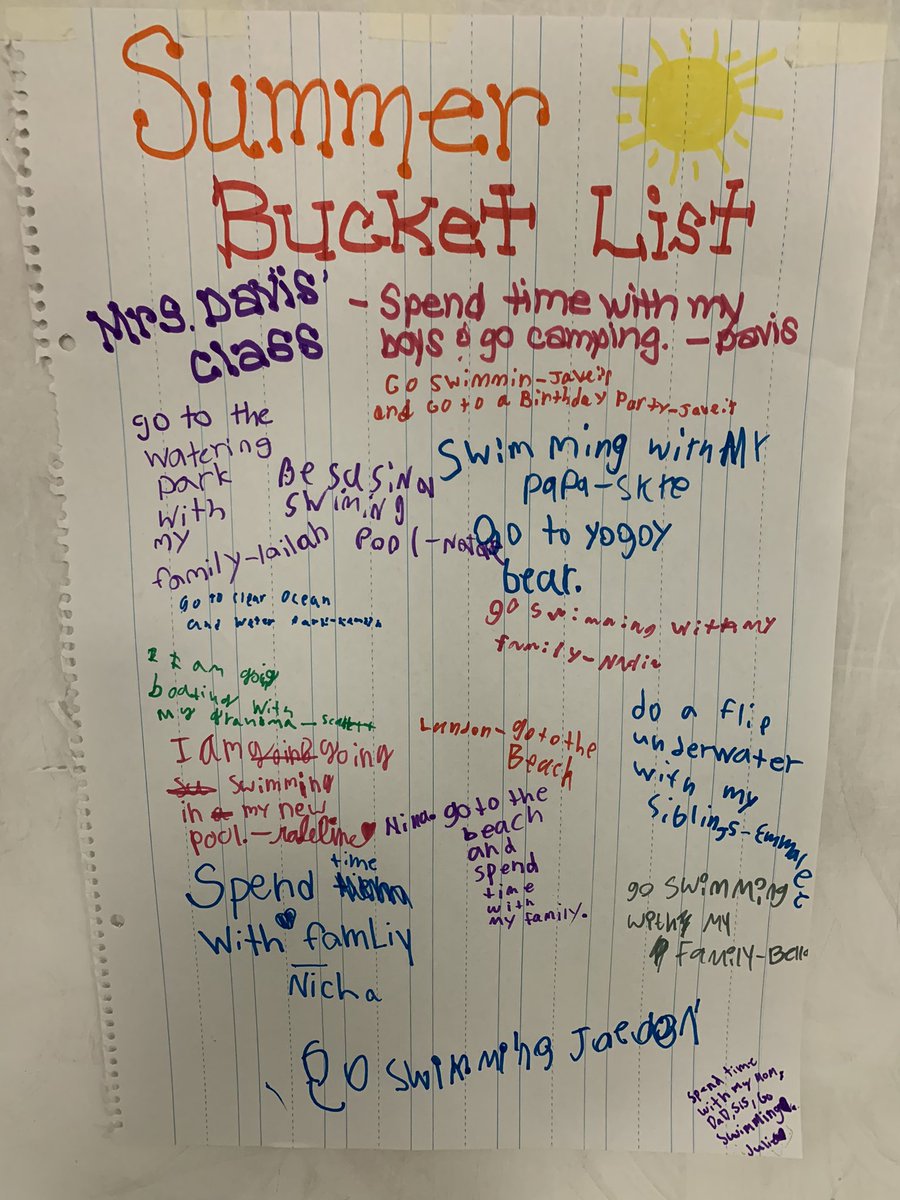 Summer
Bucket List
Mrs. Davis'
class
- Spend time with my
boys & go camping. - Davis
Go swimmin - Javeir
and Go to a Birthday Party - Javeir
go to the
watering
park
with
my
family - lailah
Be susina
swiming
pool -
Swimming with My
papa - skye
Go to yogoy
bear.
Go to clear ocean
and water park -
go swimming with my
family - Nadia
I am going
boating with
my grandma - scarlett
I am going going
swimming
in a my new
pool. -
London - go to the
Beach
do a flip
underwater
with my
siblings - Emmalee
Nina. go to the
beach
and
spend
time
with
my family.
Spend time
with famLiy
Nicha
go swimming
with My
Family - Bella
Go swimming Jaedon
spend time
with my Mom,
DaD, sis, Go
swimming.
Julie